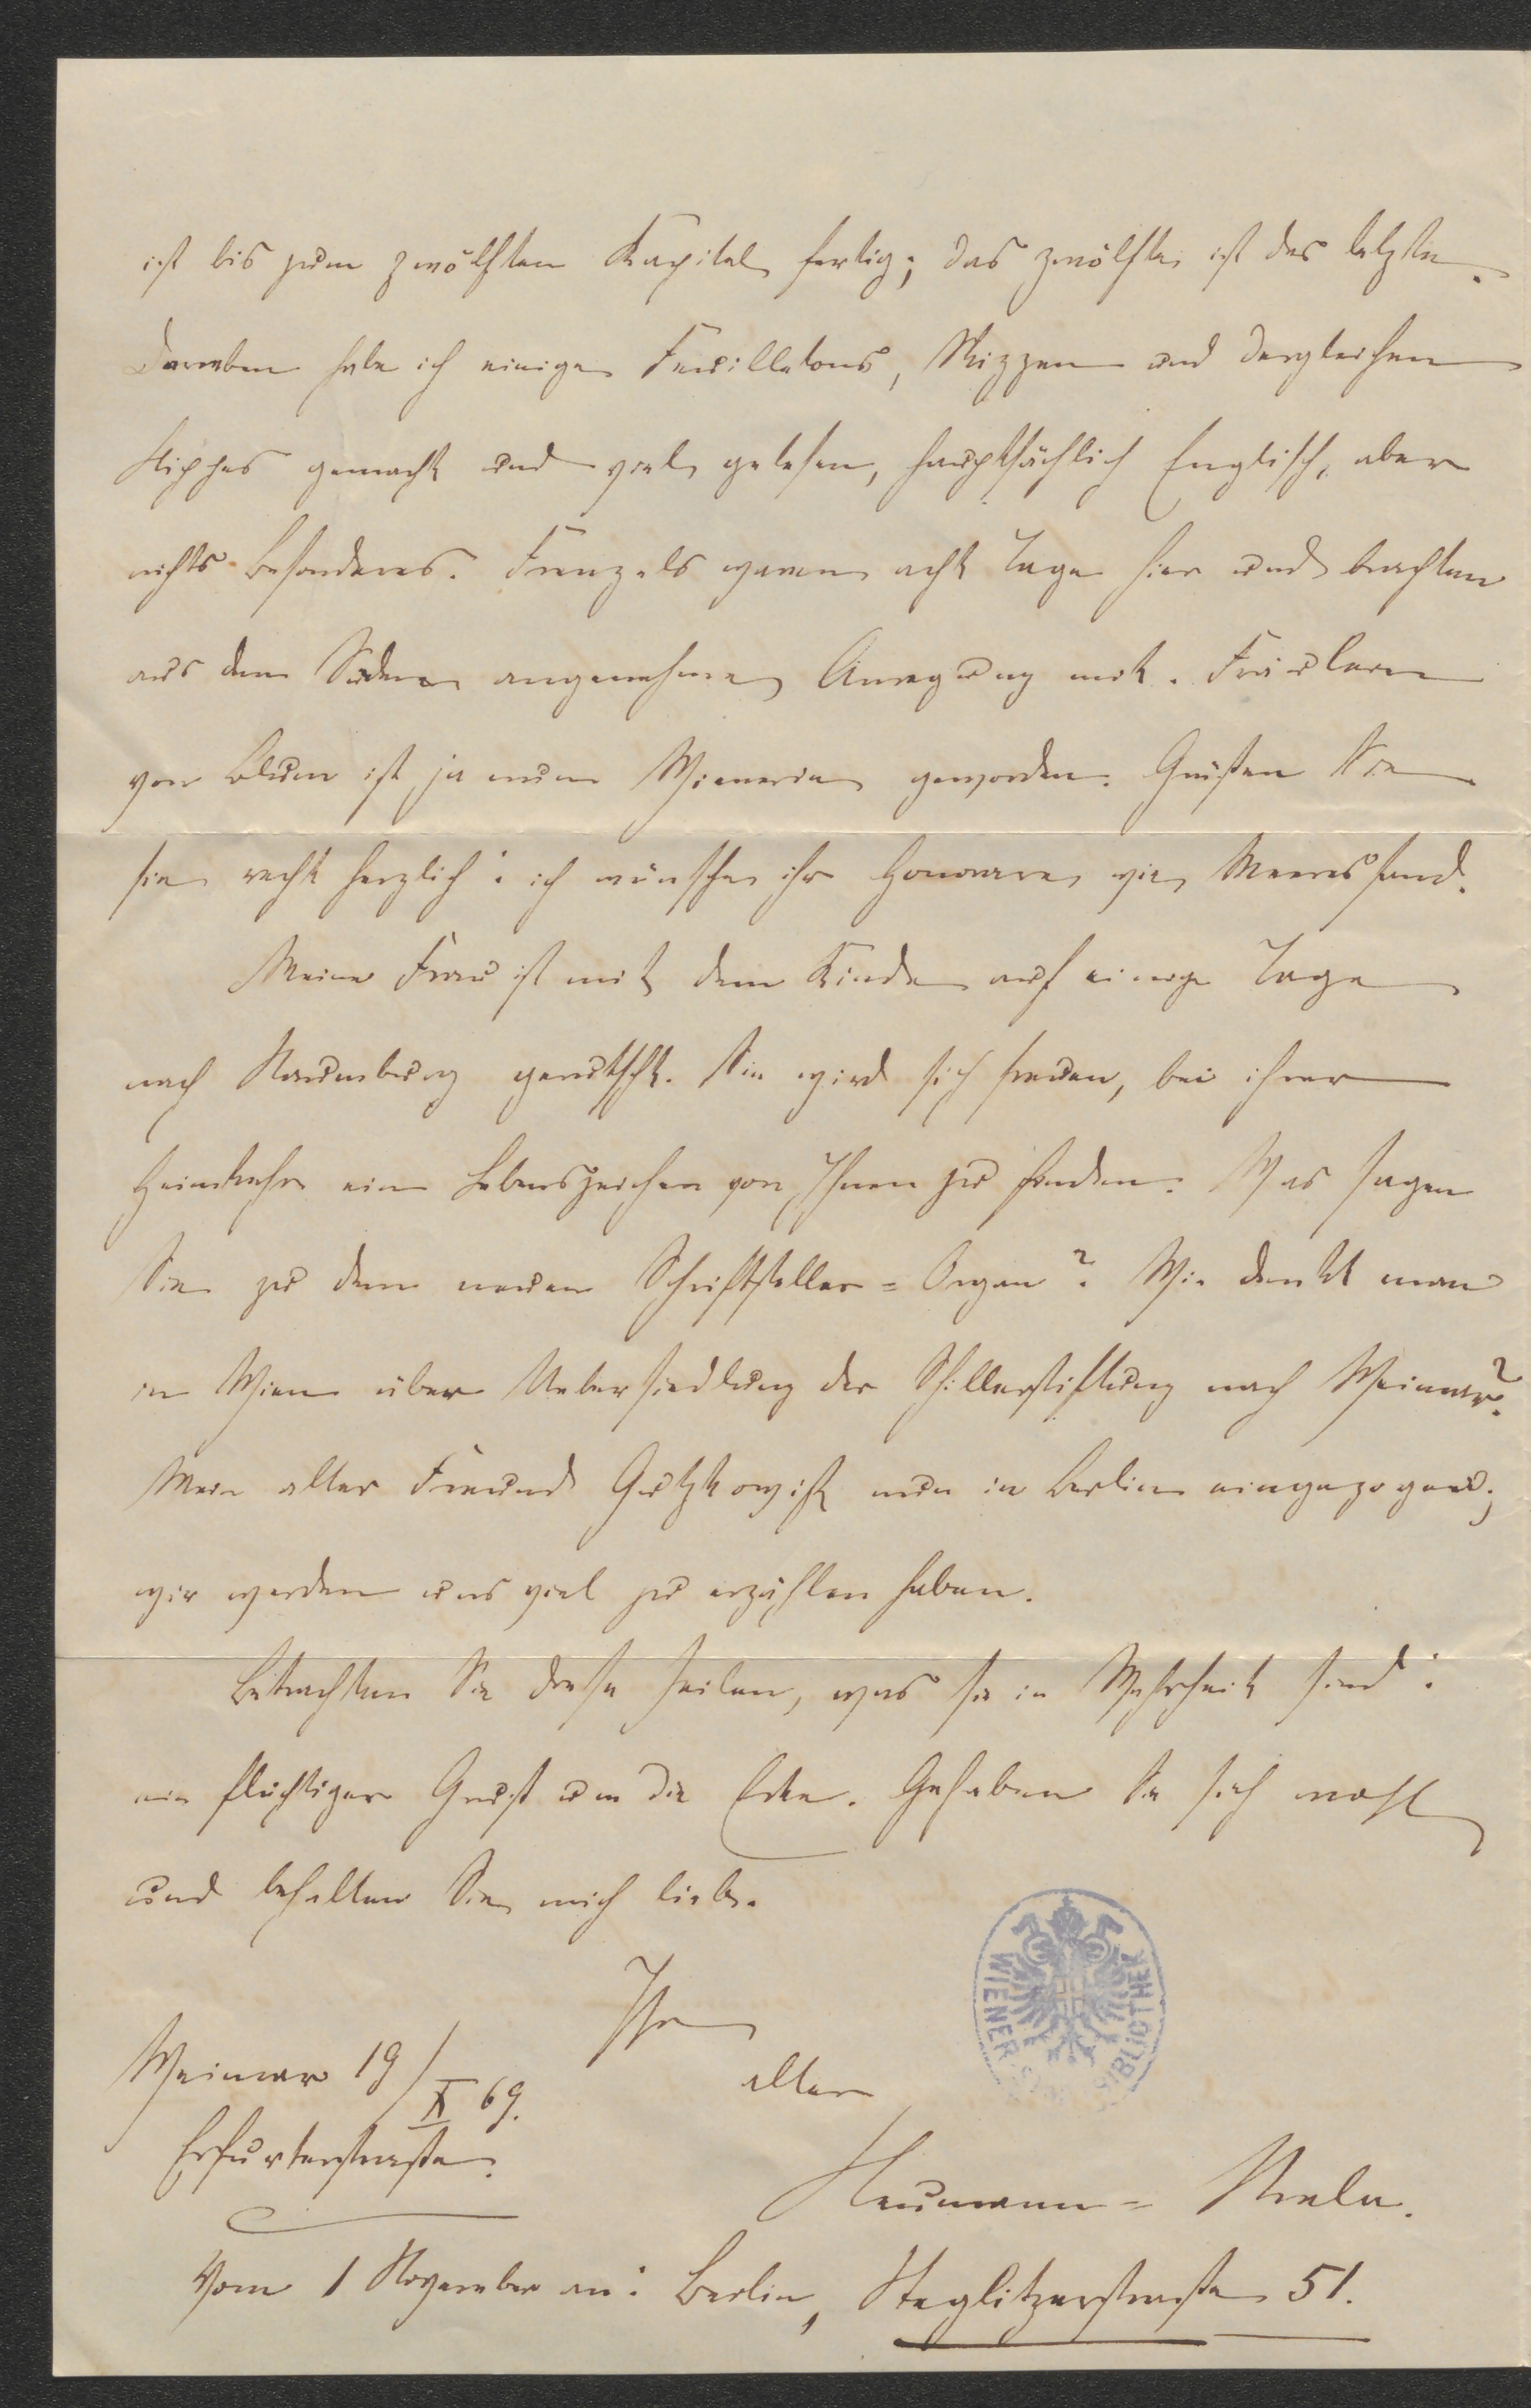 ist bis zum zwölften Kapitel fertig; das zwölfte ist das letzte.
Daneben habe ich einige Feuilletons, Skizzen und dergleichen
Nippes gemacht und viel gelesen, hauptsächlich Englisch, aber
nichts Besonderes. Frenzels waren acht Tage hier und brachten
aus dem Süden angenehme Anregung mit. Fräulein
von Blum ist ja nun Wienerin geworden. Grüßen Sie
sie recht herzlich; ich wünsche ihr Honorare wie Meeressand.
Meine Frau ist mit dem Kinde auf einige Tage
nach Naumburg gerutscht. Sie wird sich freuen, bei ihrer
Heimkehr ein Lebenszeichen von Ihnen zu finden. Was sagen
Sie zu dem neuen Schriftsteller=Organ? Wie denkt man
in Wien über Uebersiedlung der Schillerstiftung nach Weimar?
Mein alter Freund Gutzkow ist nun in Berlin eingezogen;
wir werden uns viel zu erzählen haben.
Betrachten Sie diese Zeilen, was sie in Wahrheit sind:
ein flüchtiger Gruß um die Ecke. Gehaben Sie sich wohl
und behalten Sie mich lieb.
Ihr
alter
WIENER BIBLIOTHEK
Weimar 19/X 69.
Erfurterstraße.
Neumann=Strela.
Vom 1 November an: Berlin, Steglitzerstraße 51.